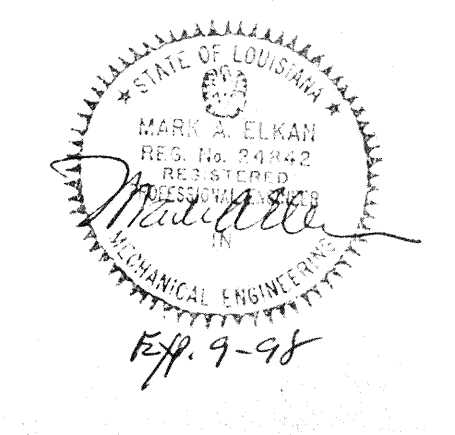 ★ STATE OF LOUISIANA ★
MARK A. ELKAN
REG. No. 24842
REGISTERED
PROFESSIONAL ENGINEER
IN
MECHANICAL ENGINEERING
Exp. 9-98